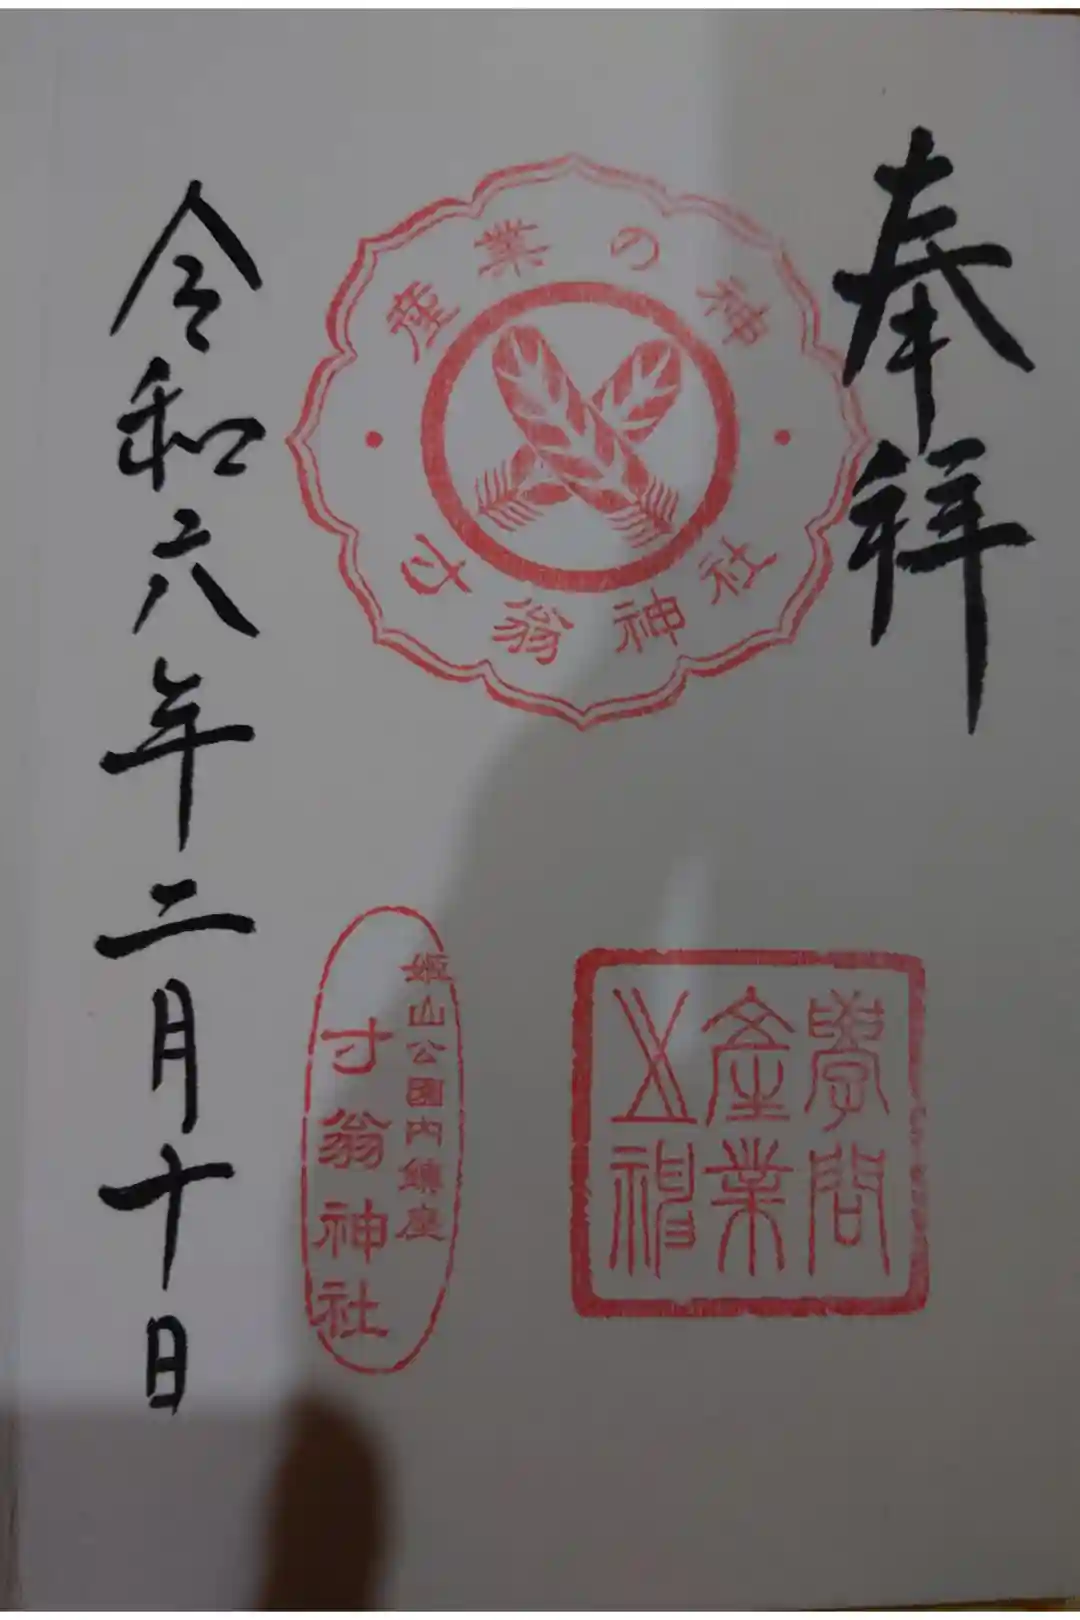 奉拝
産業の神
寸翁神社
學問
産業
之神
姫山公園内鎮座
寸翁神社
令和六年二月十日